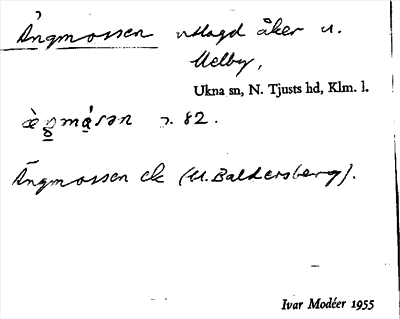 Ängmossen utlagd åker u.
Melby,
Ukna sn, N. Tjusts hd, Klm. l.
s. 82.
Ängmossen ek (U. Baldersberg).
Ivar Modéer 1955